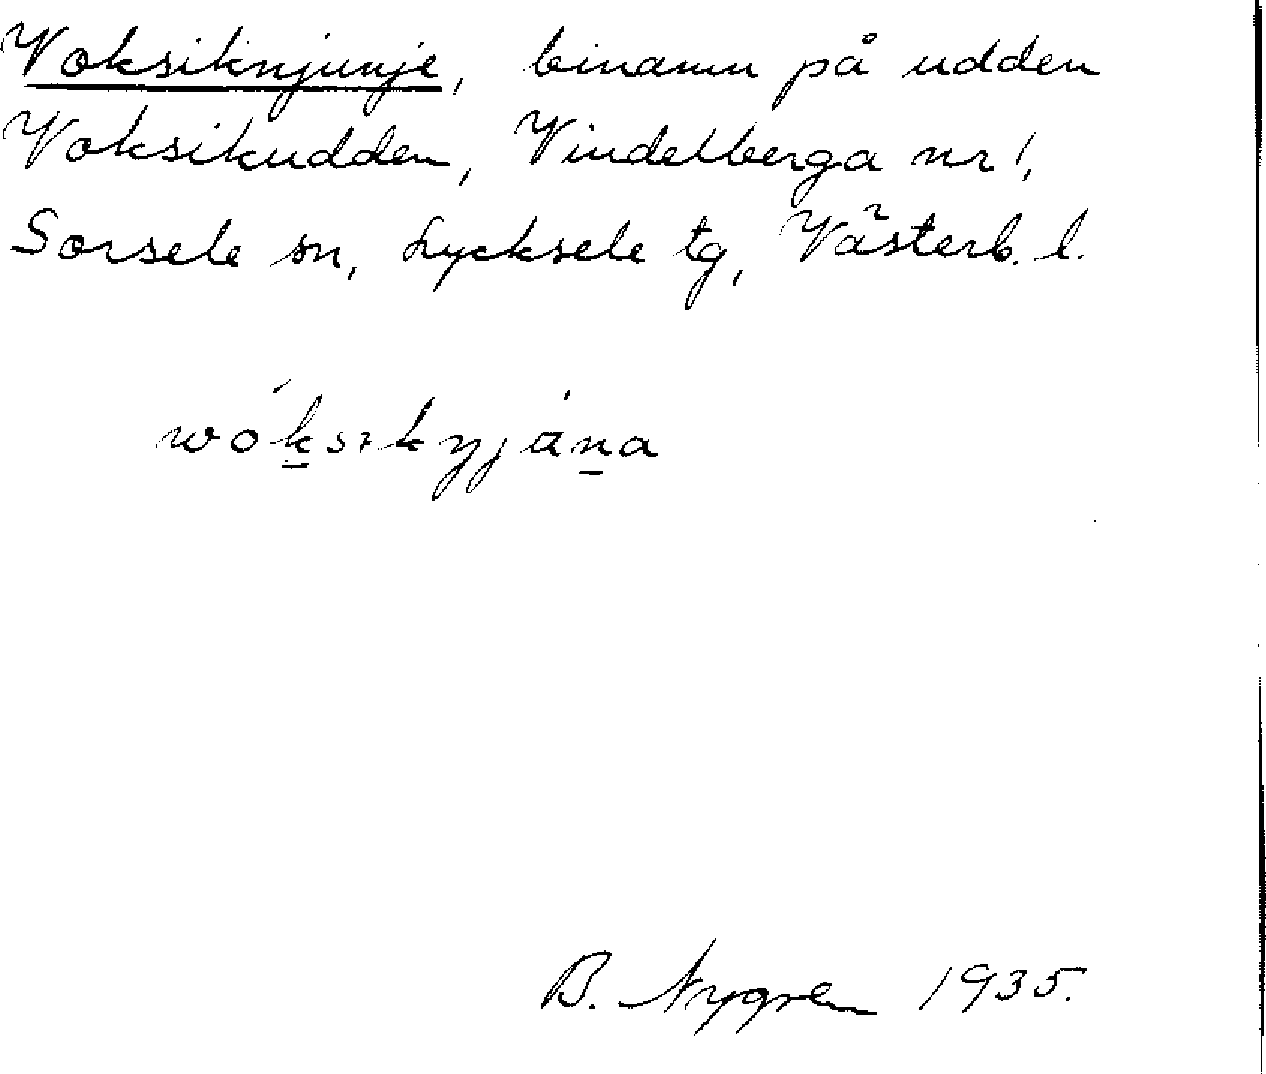 Voksiknjunje, binamn på udden
Voksikudden, Vindelberga nr 1,
Sorsele sn, Lycksele tg, Västerb. l.
B. Nygren 1935.